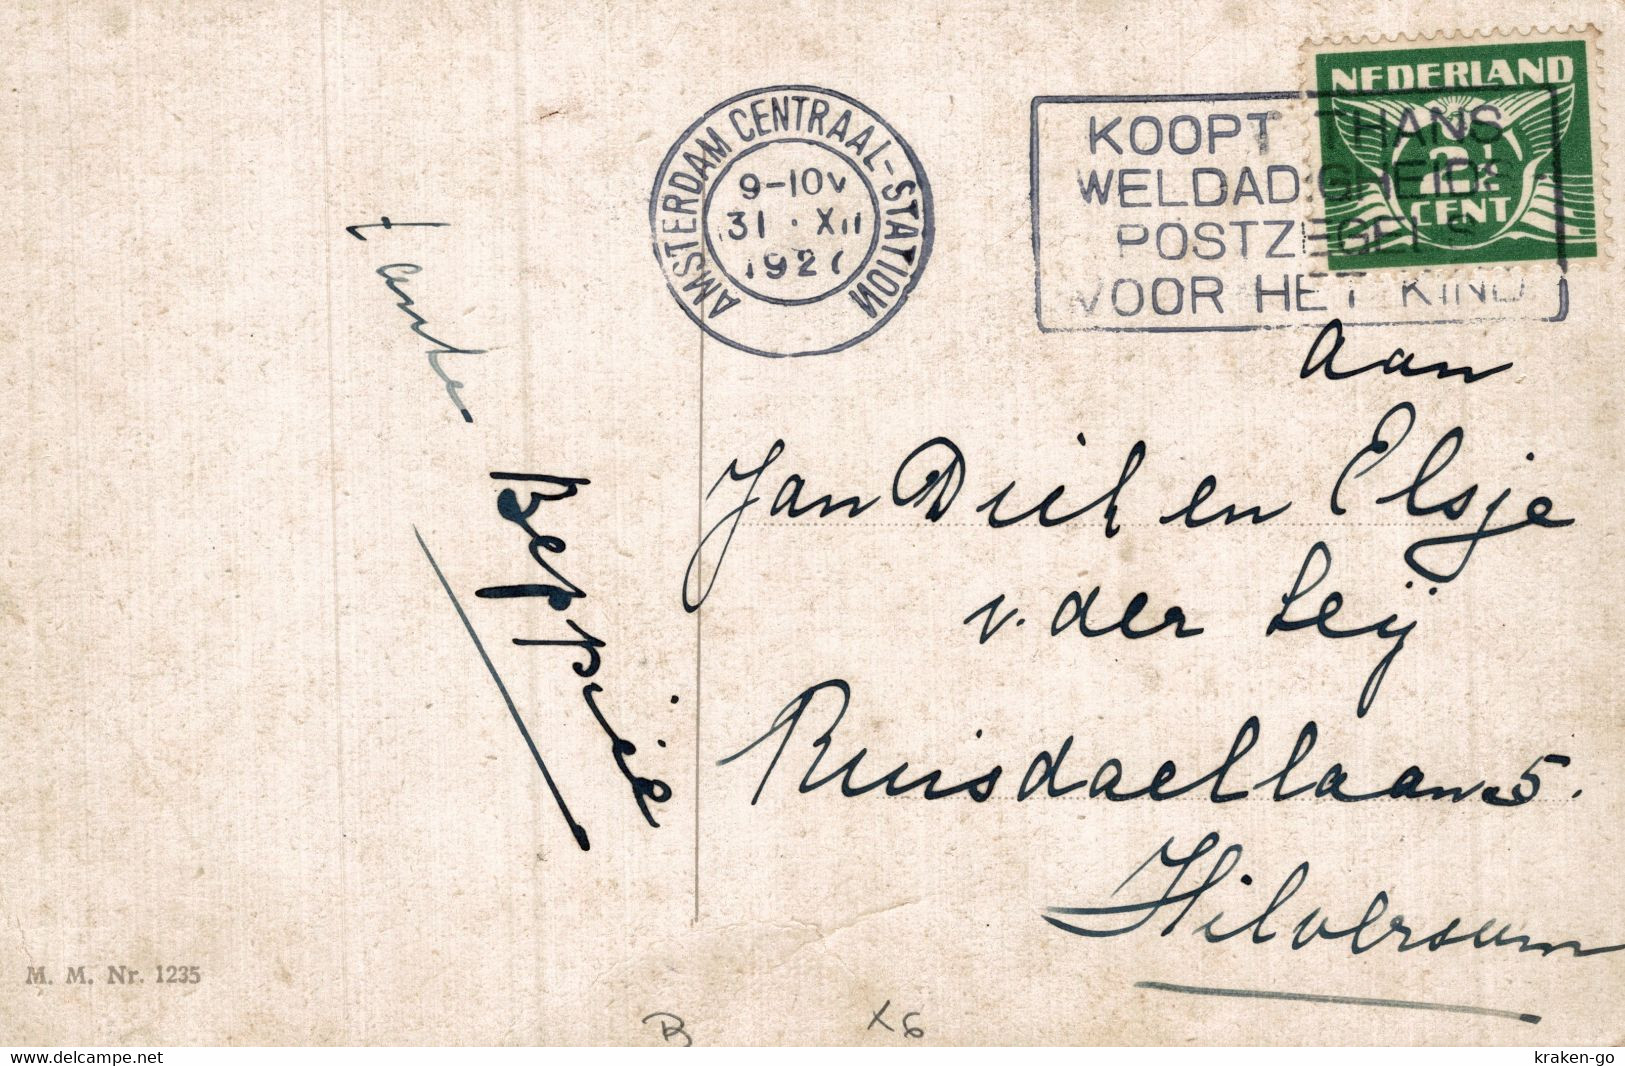 NEDERLAND
2½
CENT
AMSTERDAM CENTRAAL-STATION
9-10V
31 · XII
1927
KOOPT THANS
WELDADIGHEIDS
POSTZEGELS
VOOR HET KIND
tante
Beppie
Aan
Jan Dick en Elsje
v. der Leij
Ruisdaellaan 5.
Hilversum
M. M. Nr. 1235
B X6
delcampe.net
kraken-go